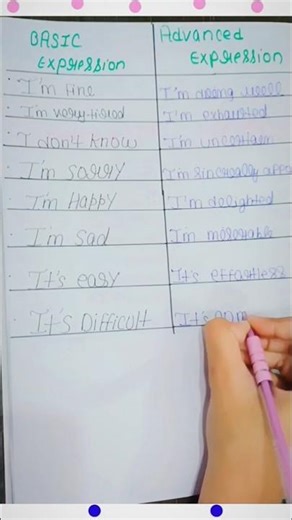 BASIC Expression
Advanced Expression
I'm fine
I'm doing well
I'm very tired
I'm exhausted
I don't know
I'm uncertain
I'm sorry
I'm sincerely apo
I'm Happy
I'm delighted
I'm sad
I'm miserable
It's easy
It's effortless
It's Difficult
It's com